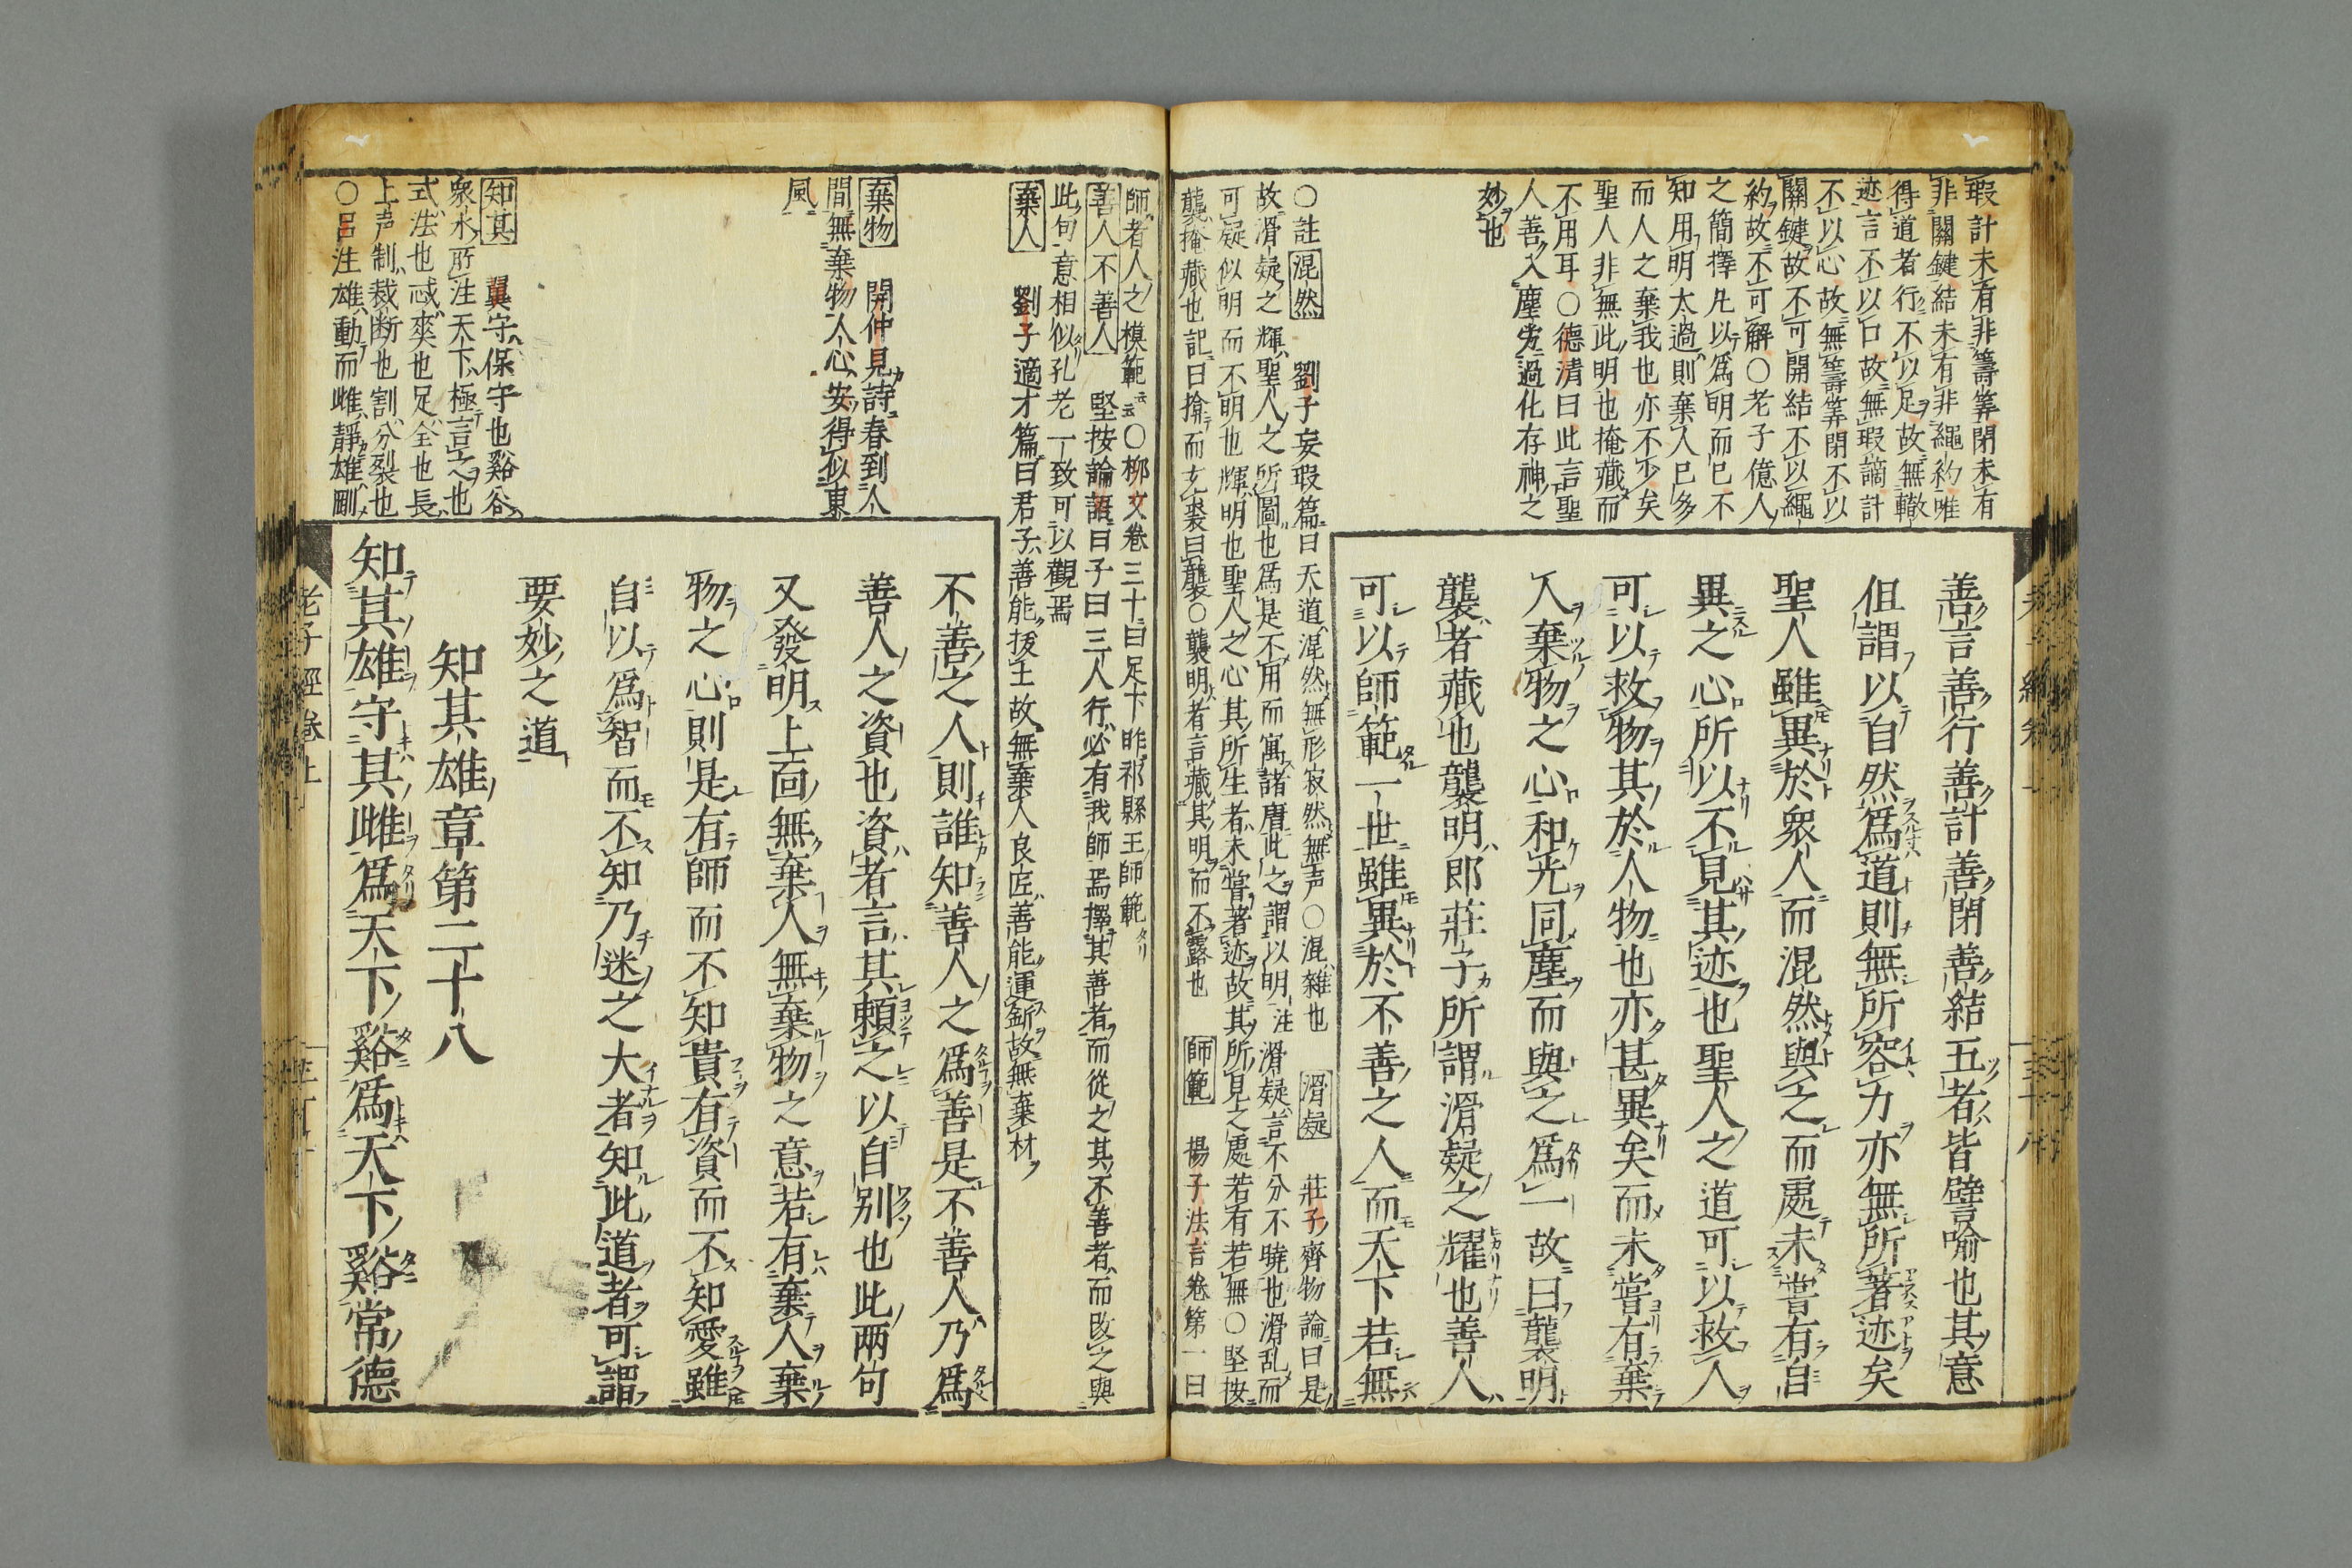 瑕計未有非籌筭閉未有
非關鍵結未有非繩約唯
得道者行不以足故無轍
迹言不以口故無瑕謫計
不以心故無籌筭閉不以
關鍵故不可開結不以繩
約故不可解○老子億人
之簡擇凡以爲明而已不
知用明太過則棄人已多
而人之棄我也亦不少矣
聖人非無此明也掩藏而
不用耳○德清曰此言聖
人善入塵勞過化存神之
妙也
善言善行善計善閉善結五者皆譬喻也其意
但謂以自然爲道則無所容力亦無所著迹矣
聖人雖異於衆人而混然與之而處未嘗有自
異之心所以不見其迹也聖人之道可以救人
可以救物其於人物也亦甚異矣而未嘗有棄
人棄物之心和光同塵而與之爲一故曰襲明
襲者藏也襲明即莊子所謂滑疑之耀也善人
可以師範一世雖異於不善之人而天下若無
○註混然 劉子妄瑕篇曰天道混然無形寂然無声○混雜也 滑疑 莊子齊物論曰是
故滑疑之輝聖人之所圖也爲是不用而寓諸庸此之謂以明注滑疑言不分不曉也滑乱而
可疑似明而不明也輝明也聖人之心其所生者未嘗著迹故其所見之處若有若無○堅按
襲掩藏也記曰揜而玄裘曰襲○襲明者言藏其明而不露也 師範 揚子法言卷第一曰
師者人之模範云云○柳文卷三十曰足下昨祁縣王師範
善人不善人 堅按論語曰子曰三人行必有我師焉擇其善者而從之其不善者而改之與
此句意相似孔老一致可以觀焉
棄人 劉子適才篇曰君子善能拔士故無棄人良匠善能運斧故無棄材
棄物 開仲見詩春到人
間無棄物人心安得似東
風
知其 翼守保守也谿谷
衆水所注天下極言之也
式法也忒爽也足全也長
上声制裁断也割分裂也
○呂注雄動而雌靜雄剛
不善之人則誰知善人之爲善是不善人乃爲
善人之資也資者言其頼之以自别也此兩句
又發明上面無棄人無棄物之意若有棄人棄
物之心則是有師而不知貴有資而不知愛雖
自以爲智而不知乃迷之大者知此道者可謂
要妙之道
知其雄章第二十八
知其雄守其雌爲天下谿爲天下谿常德
老子經卷上